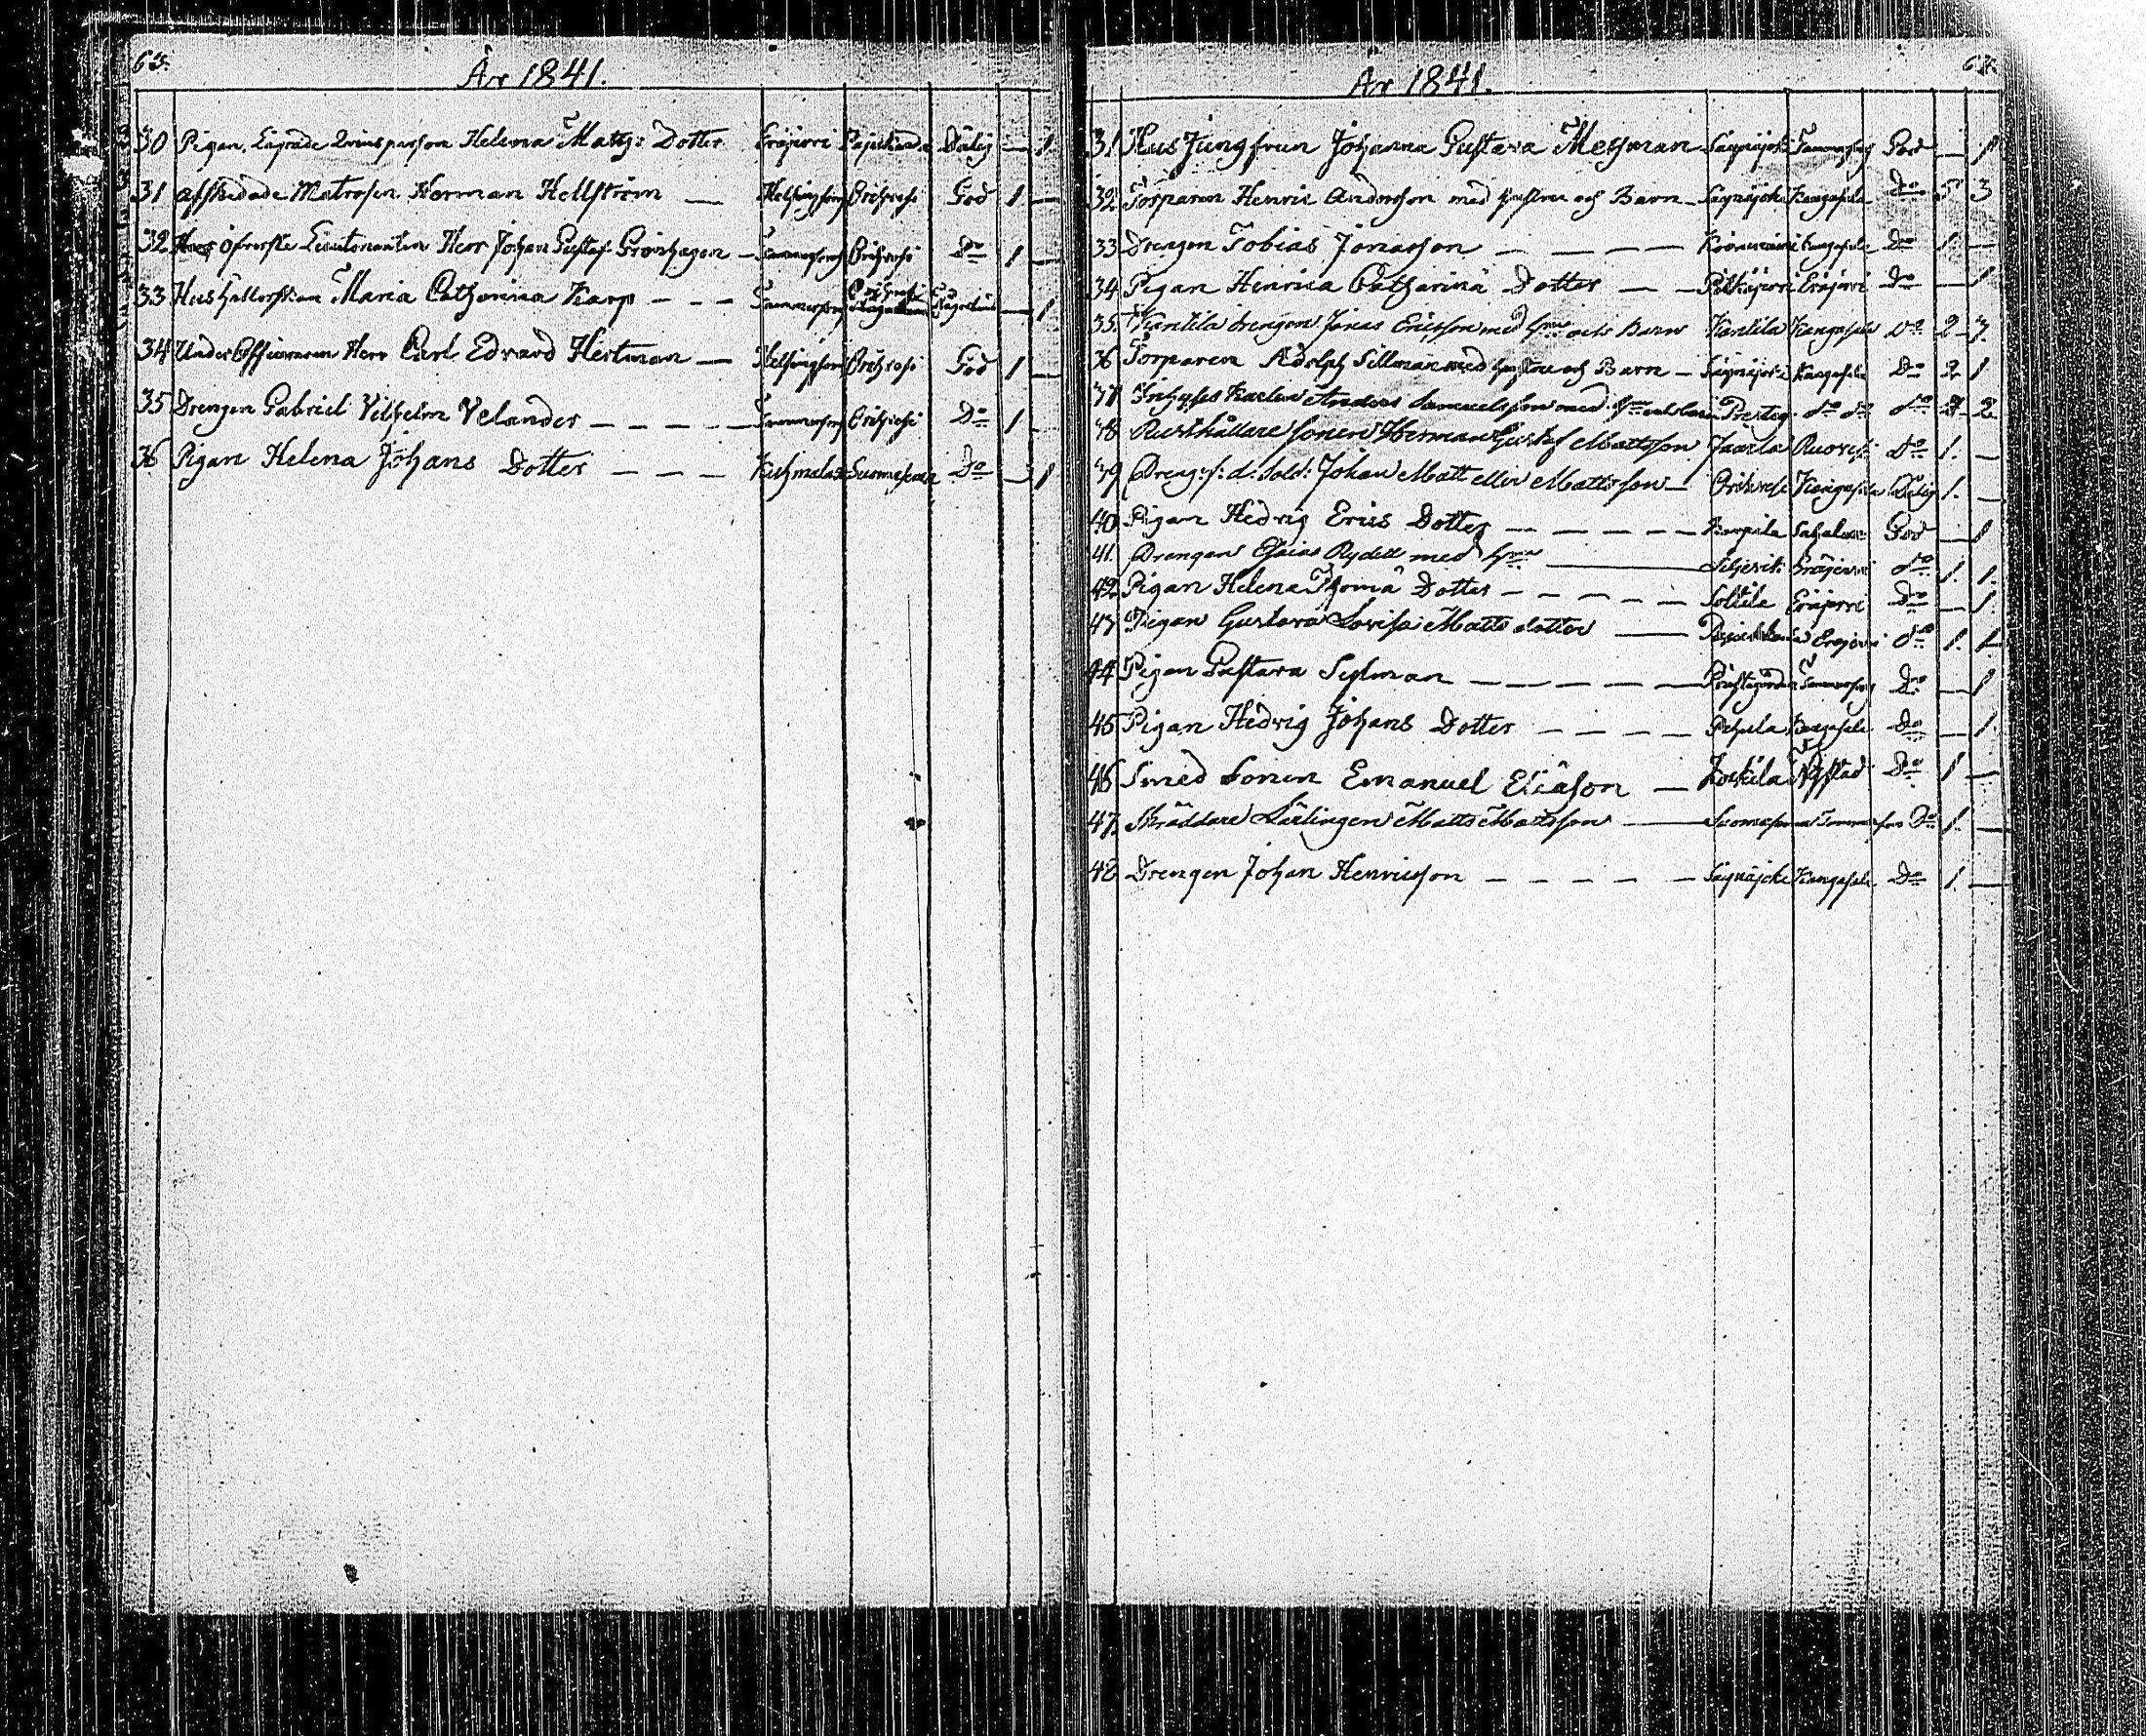 63.
År 1841.
30 Pigan, Lägrade Qvinsperson Helena Matts Dotter Eräjervi Pajukanda Dålig — 1
31 afskedade Matrosen Herman Hellström — Helsingfors Orihvesi God 1 —
32 Öfverste Lieutenanten Herr Johan Gustaf Grönhagen — Tammerfors Orihvesi Do 1 —
33 Hushållerskan Maria Catharina Karp — — — Tammerfors — 1
34 Under Officeraren Herr Carl Edvard Hertman — Helsingfors Orihvesi God 1 —
35 Drengen Gabriel Vilhelm Velander — — — — — Tammerfors Orihvesi Do 1 —
36 Pigan Helena Johans Dotter — — — Kuhmalax Suomasema Do — 1
År 1841.
31 Hus Jungfrun Johanna Gustava Messman Säynäjoki Tammerfors God — 1
32 Torparen Henric Andersson med hustru och Barn — Säynäjoki Kangasala Do 5 3
33 Drengen Tobias Jonasson — — — — Kangasala Do 1 —
34 Pigan Henrica Catharina Dotter — — Pitkäjervi Eräjervi Do — 1
35. Kantila drengen Jonas Ericsson med hru och Barn Kantila Kangasala Do 2 3.
36 Torparen Adolph Sillman med hustru och Barn — Säynäjoki Kangasala Do 2 1
37 Inhyses Karlen Anders Samuelsson med hru och barn Presteg. do do do 2
38 Rusthållare sonen Herman Gustaf Mattsson Juorla Ruovesi Do 1. —
39 Dreng: f: d: Sold: Johan Matt eller Mattsson — Orihvesi Kangasala Dålig 1. —
40 Pigan Hedvig Erics Dotter — — — — — Sahalax God — 1
41. Drengen Esaias Rydell med hru — Eräjervi do 1. 1.
42 Pigan Helena Thoma Dotter — — — — — Sottila Eräjervi Do — 1
43 Pigan Gustava Lovisa Matts dotter — Eräjervi do 1. 1
44 Pigan Gustava Sylman — — — — — — Prästgården Tammerfors Do — 1
45 Pigan Hedvig Johans Dotter — — — — Pehula Kangasala Do — 1
46 Smed Sonen Emanuel Eliäson — Koskela Nystad Do 1 —
47. Skräddare Lärlingen Matts Mattsson — Suomasema Tammerfors Do 1. —
48 Drengen Johan Henricsson — — — — — Säynäjoki Kangasala Do 1 —